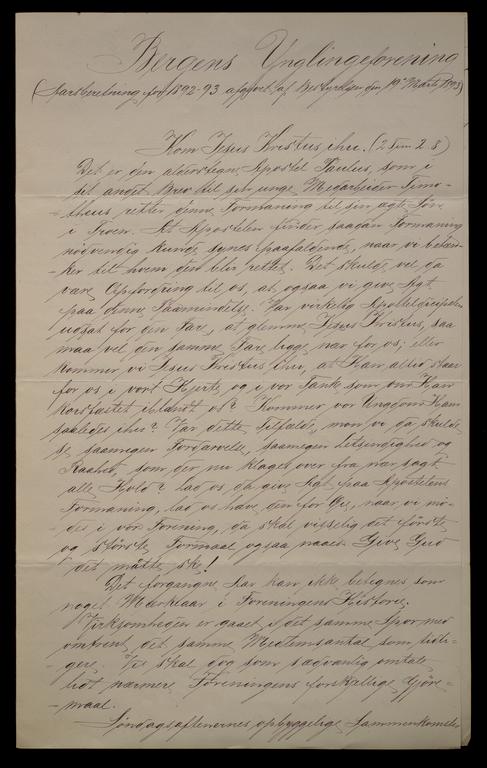 Bergens Ynglingeforening
(Aarsberetning for 1892-93 afgivet af Bestyrelsen den 19de Marts 1893)
Kom Jesus Kristus ihu. (2 Tim 2.8)
Det er den alderstegne Apostel Paulus, som i
sit andet Brev til sin unge Medarbeider Timo-
theus retter denne Formaning til sin ægte Søn
i Troen. At Apostelen finder saadan Formaning
nødvendig kunde synes paafaldende, naar vi betæn-
ker til hvem den blir rettet. Det skulde vel da
være Opfordring til os, at ogsaa vi give Agt
paa denne Paamindelse. Var virkelig Aposteldiscipelen
udsat for den Fare, at glemme Jesus Kristus, saa
maa vel den samme Fare ligge nær for os; eller
kommer vi Jesus Kristus ihu, at Han altid staar
for os i vort Hjerte og i vor Tanke som om Han
korsfæstet iblandt os? Kommer vor Ungdom Ham
saaledes ihu? Var dette Tilfældet, mon vi da skulde
se saamegen Fordærvelse, saamegen Letsindighed og
Raahed, som der nu klages over fra nær sagt
alle Hold? Lad os da give Agt paa Apostelens
Formaning, lad os have den for Øie, naar vi mø-
des i vor Forening, da skal visselig det første
og største Formaal ogsaa naaes. Give Gud
det måtte ske!
Det forgangne Aar kan ikke betegnes som
noget Mærkeaar i Foreningens Historie.
Virksomheden er gaaet i det samme Spor med
omtrent det samme Medlemsantal som tidli-
gere. Vi skal dog som sædvanlig omtale
lidt nærmere Foreningens forskjellige Gjøre-
maal.
Søndagsaftenernes opbyggelige Sammenkomster